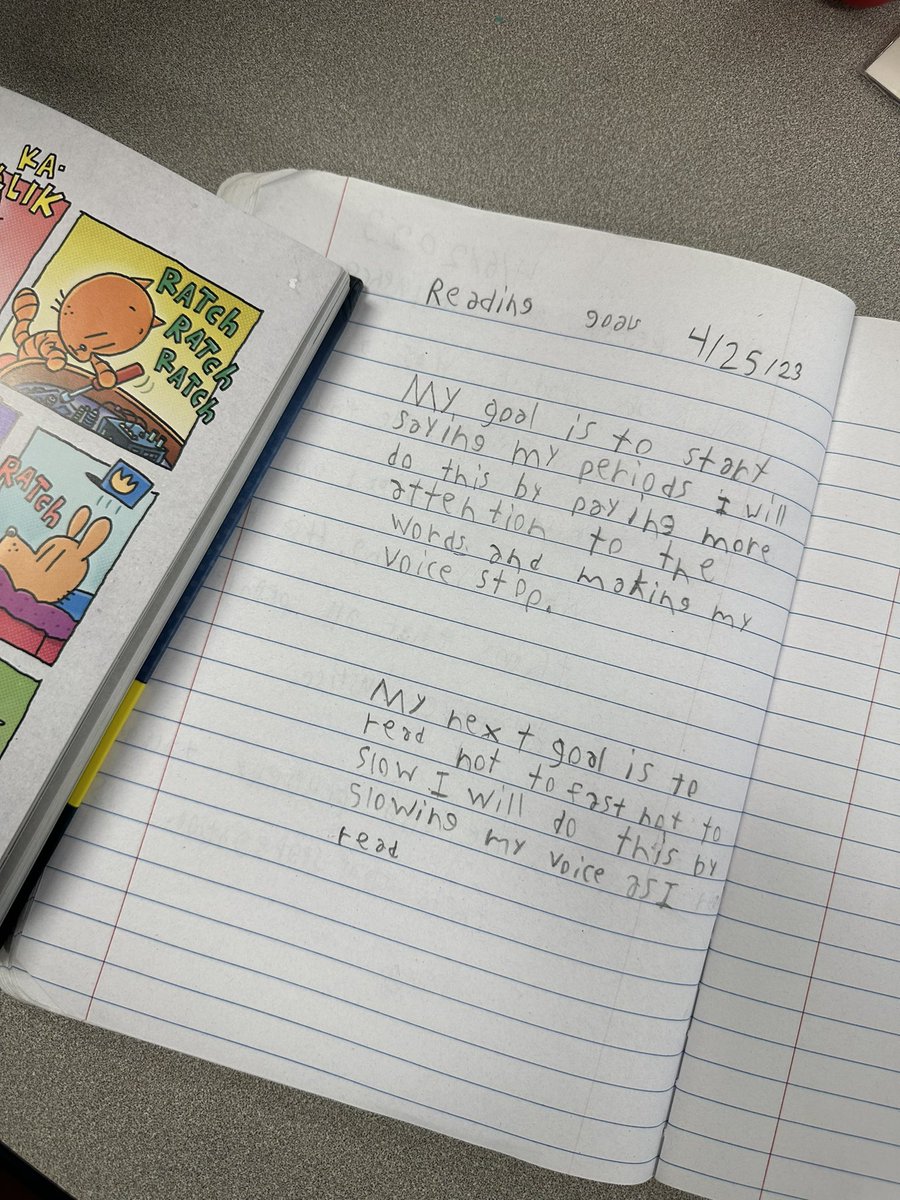 KA-
LIK
RATCH
RATCH
RATCH
RATCH
Reading goals 4/25/23
My goal is to start
saying my periods I will
do this by paying more
attention to the
words and making my
voice stop.
My next goal is to
read not to fast not to
slow I will do this by
slowing my voice as I
read